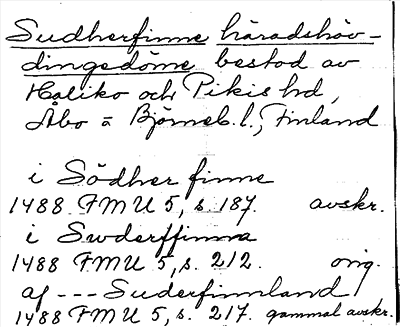 Sudherfinne häradshöv-
dingedöme bestod av
Haliko och Pikis hd,
Åbo o Björneb. l., Finland
i Södher finne
1488 FMU 5, s. 187. avskr.
i Swderffinna
1488 FMU 5, s. 212. orig.
af --- Suderfinnland
1488 FMU 5, s. 217. gammal avskr.